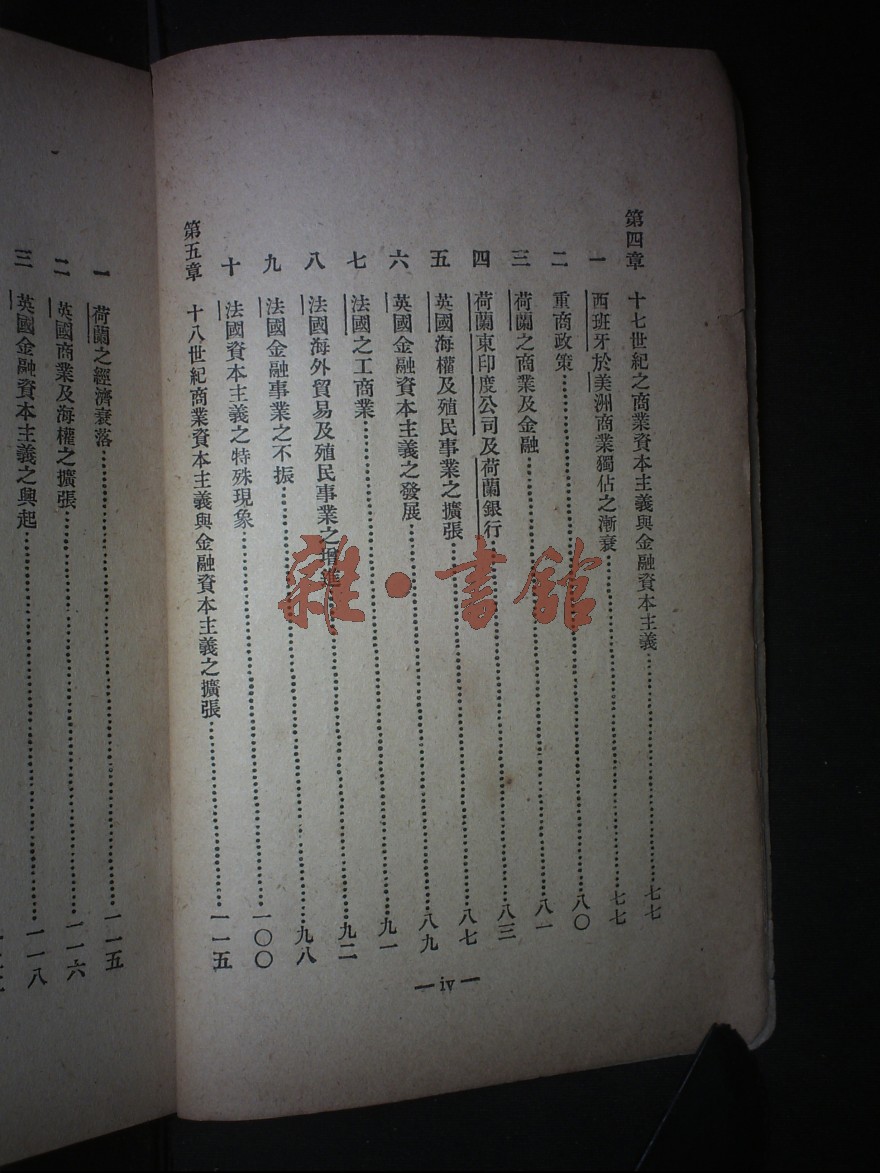 第四章 十七世紀之商業資本主義與金融資本主義……七七
一 西班牙於美洲商業獨佔之漸衰……七七
二 重商政策……八〇
三 荷蘭之商業及金融……八一
四 荷蘭東印度公司及荷蘭銀行……八三
五 英國海權及殖民事業之擴張……八七
六 英國金融資本主義之發展……八九
七 法國之工商業……九一
八 法國海外貿易及殖民事業之增進……九二
九 法國金融事業之不振……九八
十 法國資本主義之特殊現象……一〇〇
第五章 十八世紀商業資本主義與金融資本主義之擴張……一一五
— iv —
一 荷蘭之經濟衰落……一一五
二 英國商業及海權之擴張……一一六
三 英國金融資本主義之興起……一一八
雜·書館